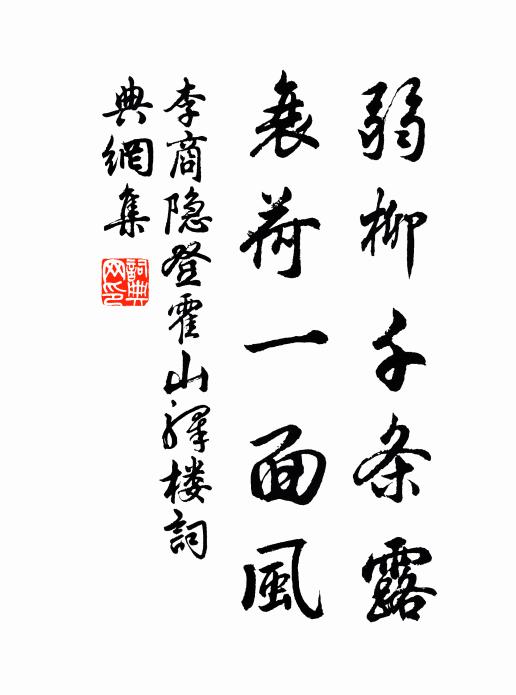 弱柳千条露
衰荷一面風
李商隐登霍山驛楼詞
典網集
詞典網印